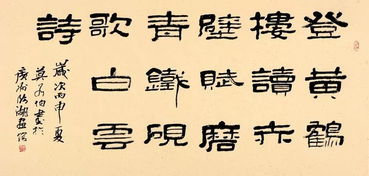 登黃鶴
樓讀赤
壁賦磨
青鐵硯
歌白雲
詩
歲次丙申夏
莫各伯書於
廣州湖畫